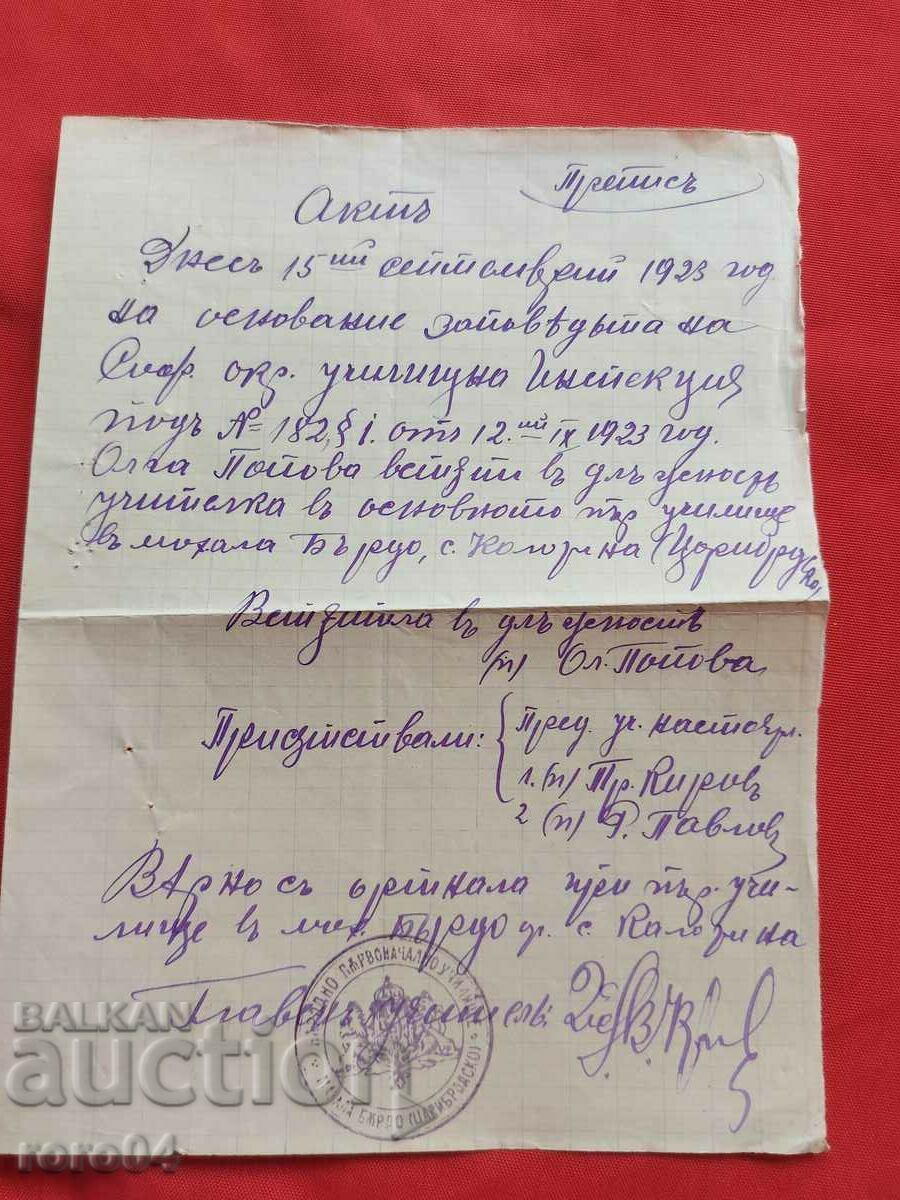 Преписъ
Актъ
Днесъ 15ий септемврий 1923 год
на основание заповѣдьта на
Соф. окр. училищна Инспекция
подъ №=182, § 1. отъ 12.ий IX 1923 год.
Олга Попова встѫпи въ длъжность
учителка въ основното пър. училище
въ махала Бърдо, с. Калотина (Царибродско)
Встѫпила въ длъжность
(п) Ол. Попова
Присѫтствали: Пред. уч. настоят.
1. (п) Тр. Кировъ
2 (п) Р. Павловъ
Вѣрно съ оригинала при пър. учи-
лище въ мах. Бърдо с. Калотина
Главенъ учитель:
НАРОДНО ПЪРВОНАЧАЛНО УЧИЛИЩЕ
МАХАЛА БЪРДО (ЦАРИБРОДСКО)
BALKAN
auction
roro04